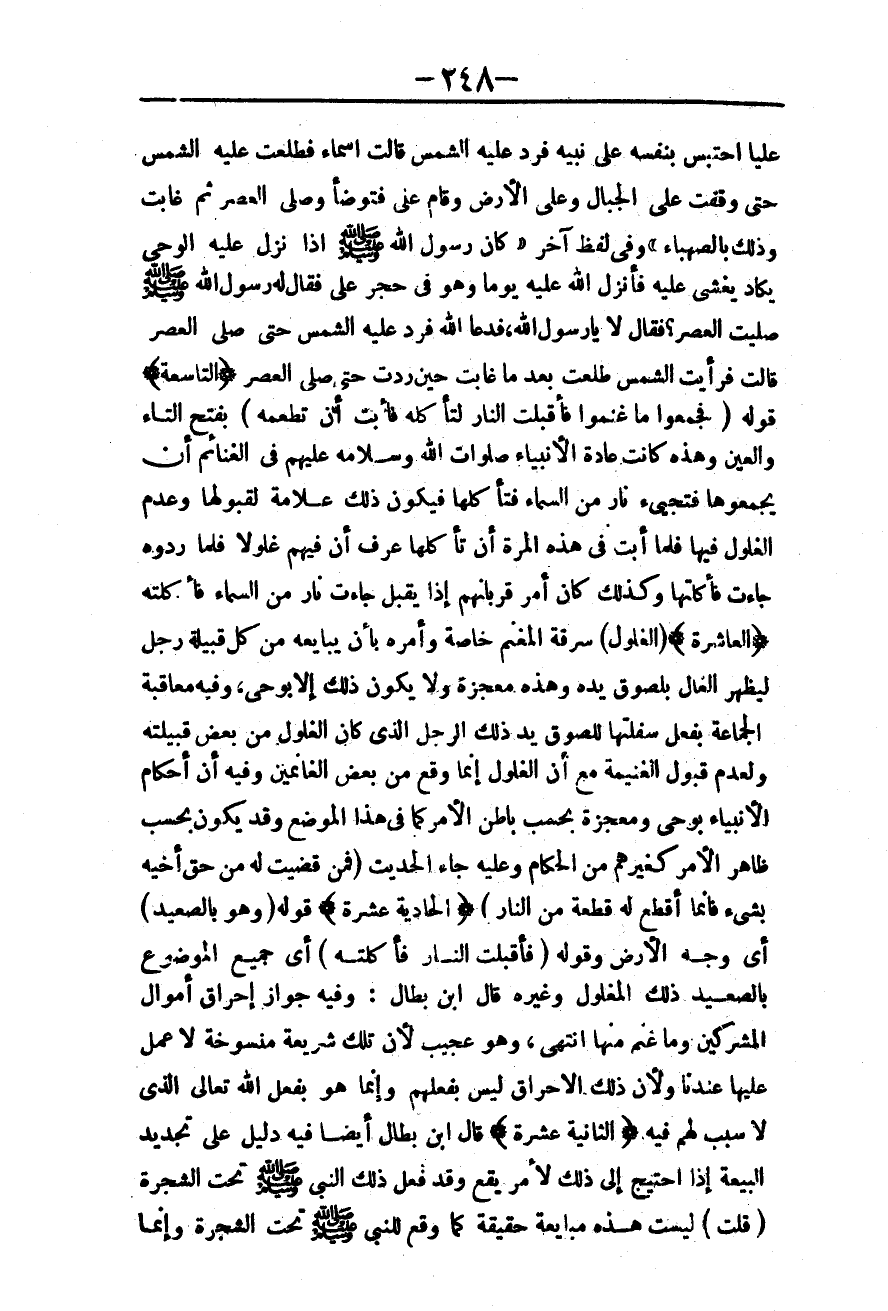 -٢٤٨-
عليا احتبس بنفسه على نبيه فرد عليه الشمس قالت اسماء فطلعت عليه الشمس
حتى وقفت على الجبال وعلى الأرض وقام على فتوضأ وصلى العصر ثم غابت
وذلك بالصهباء » وفى لفظ آخر « كان رسول الله ﷺ اذا نزل عليه الوحى
يكاد يغشى عليه فأنزل الله عليه يوما وهو فى حجر على فقال له رسول الله ﷺ
صليت العصر؟ فقال لا يارسول الله، فدعا الله فرد عليه الشمس حتى صلى العصر
قالت فرأيت الشمس طلعت بعد ما غابت حين ردت حتى صلى العصر ﴿التاسعة﴾
قوله ( فجمعوا ما غنموا فأقبلت النار لتأكله فأبت أن تطعمه ) بفتح التاء
والعين وهذه كانت عادة الأنبياء صلوات الله وسلامه عليهم فى الغنائم أن
يجمعوها فتجيىء نار من السماء فتأكلها فيكون ذلك علامة لقبولها وعدم
الغلول فيها فلما أبت فى هذه المرة أن تأكلها عرف أن فيهم غلولا فلما ردوه
جاءت فأكلتها وكذلك كان أمر قربانهم إذا يقبل جاءت نار من السماء فأكلته
﴿العاشرة ﴾(الغلول) سرقة المغنم خاصة وأمره بأن يبايعه من كل قبيلة رجل
ليظهر الغال بلصوق يده وهذه معجزة ولا يكون ذلك إلا بوحى، وفيه معاقبة
الجماعة بفعل سفلتها للصوق يد ذلك الرجل الذى كان الغلول من بعض قبيلته
ولعدم قبول الغنيمة مع أن الغلول إنما وقع من بعض الغانمين وفيه أن أحكام
الأنبياء بوحى ومعجزة بحسب باطن الأمر كما فى هذا الموضع وقد يكون بحسب
ظاهر الأمر كغيرهم من الحكام وعليه جاء الحديث (فمن قضيت له من حق أخيه
بشىء فانما أقطع له قطعة من النار ) ﴿ الحادية عشرة ﴾ قوله ( وهو بالصعيد )
أى وجه الأرض وقوله ( فأقبلت النار فأكلته ) أى جميع الموضوع
بالصعيد ذلك المغلول وغيره قال ابن بطال : وفيه جواز إحراق أموال
المشركين وما غنم منها انتهى، وهو عجيب لأن تلك شريعة منسوخة لا عمل
عليها عندنا ولأن ذلك الاحراق ليس بفعلهم وإنما هو بفعل الله تعالى الذى
لا سبب لهم فيه ﴿ الثانية عشرة ﴾ قال ابن بطال أيضا فيه دليل على تجديد
البيعة إذا احتيج إلى ذلك لأمر يقع وقد فعل ذلك النبي ﷺ تحت الشجرة
( قلت ) ليست هذه مبايعة حقيقة كما وقع للنبي ﷺ تحت الشجرة وإنما